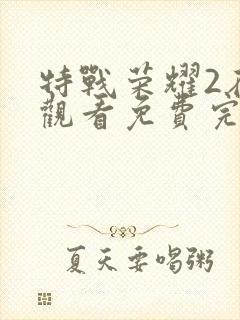 特戰荣耀2
觀看免費完
夏天要喝粥